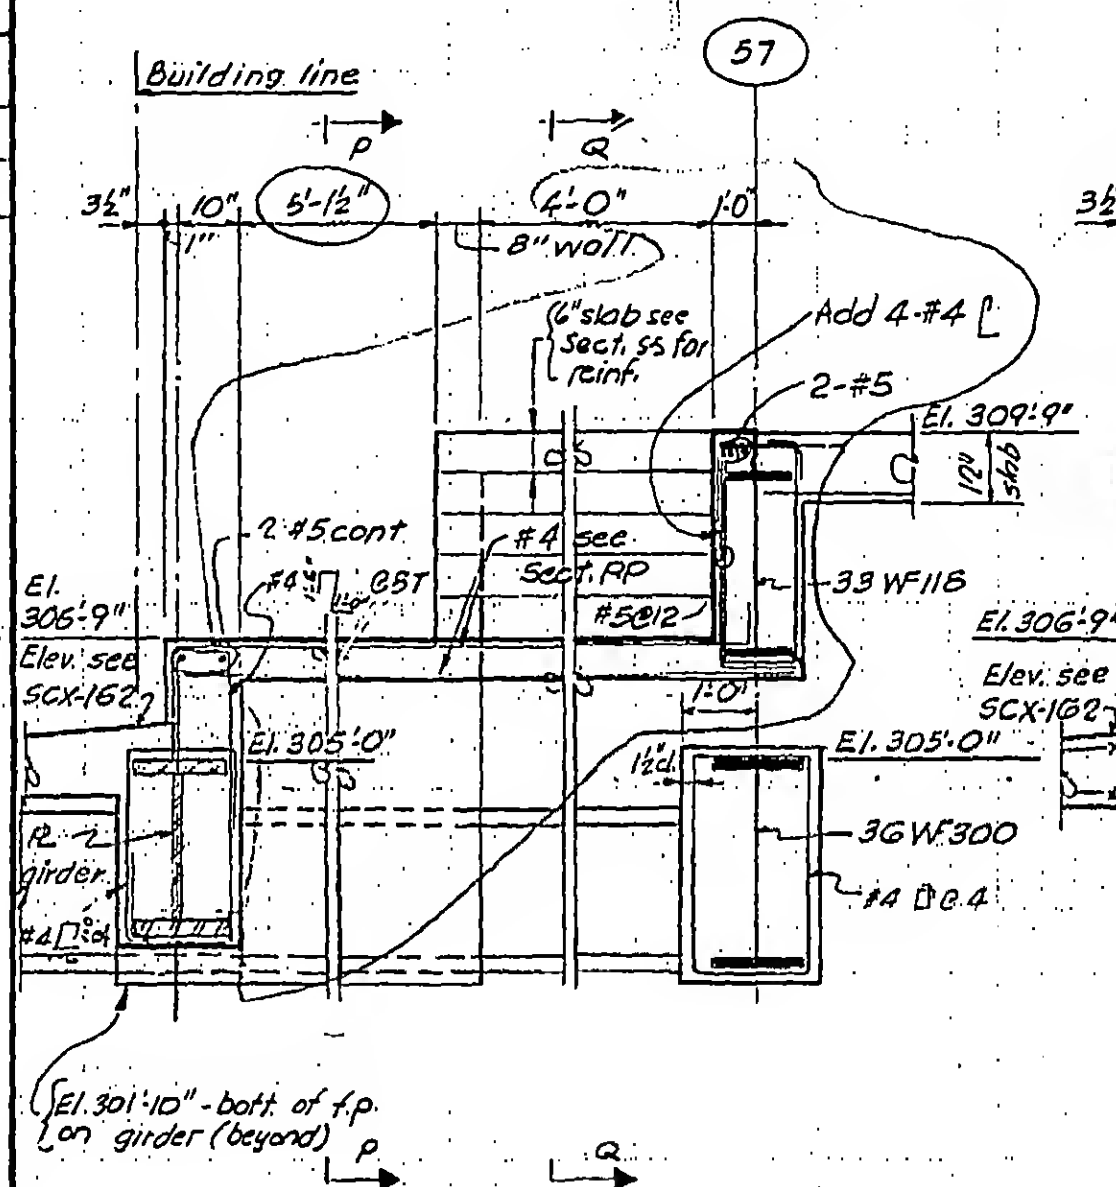 57
Building line
P
Q
3½"
10"
5'-1½"
4'-0"
1'-0"
3½
1"
8" wall
6" slab see
Sect. SS for
reinf.
Add 4-#4
2-#5
El. 309'-9"
12"
slab
2 #5 cont
#4 see
Sect. PP
El.
306'-9"
#4
33 WF118
#5@12
El. 306'-9"
Elev. see
SCX-162
Elev. see
SCX-162
1'-0"
El. 305'-0"
El. 305'-0"
1½"cl.
PL
girder
36 WF 300
#4 @ 4
#4
El. 301'-10" - bott. of f.p.
on girder (beyond)
P
Q